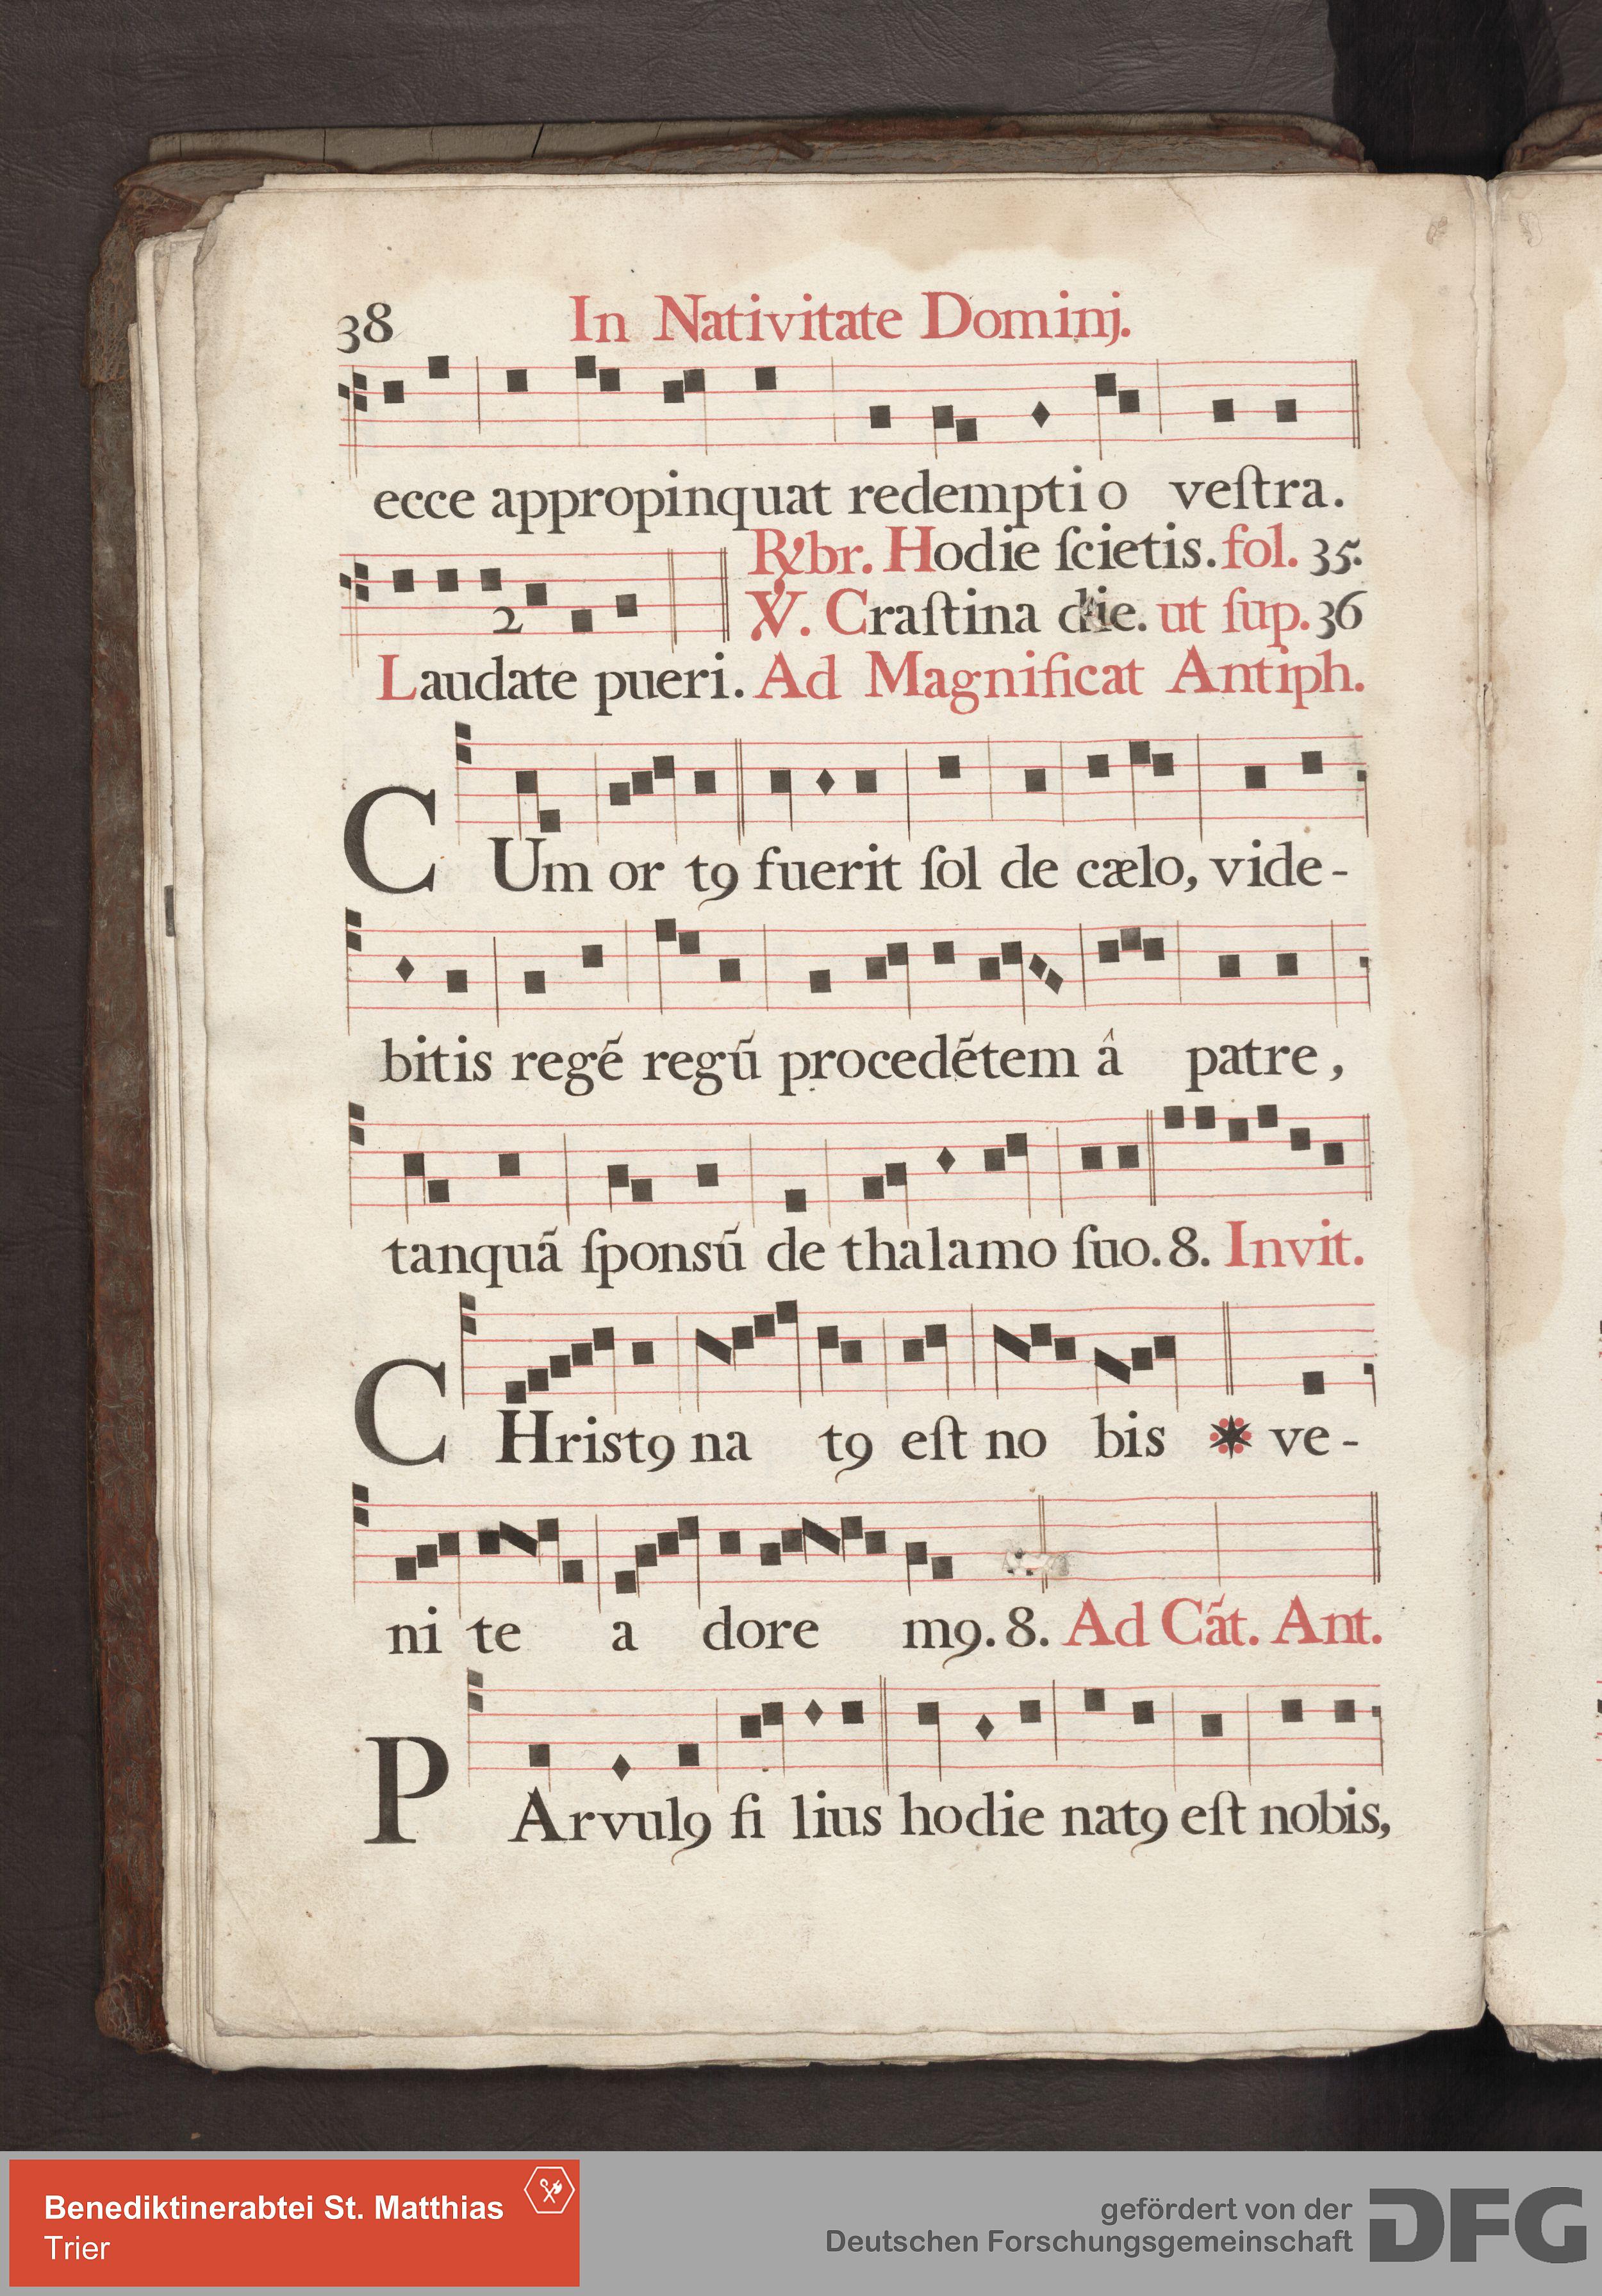 38 In Nativitate Dominj.
ecce appropinquat redemptio veſtra.
℟br. Hodie ſcietis. fol. 35.
2
℣. Craſtina die. ut ſup. 36
Laudate pueri. Ad Magnificat Antiph.
CUm ortꝯ fuerit ſol de cælo, vide-
bitis regẽ regũ procedẽtem â patre,
tanquã ſponsũ de thalamo ſuo. 8. Invit.
CHristꝯ natꝯ eſt nobis * ve-
nite adoremꝯ. 8. Ad Cãt. Ant.
PArvulꝯ filius hodie natꝯ eſt nobis,
Benediktinerabtei St. Matthias
Trier
gefördert von der
Deutschen Forschungsgemeinschaft
DFG